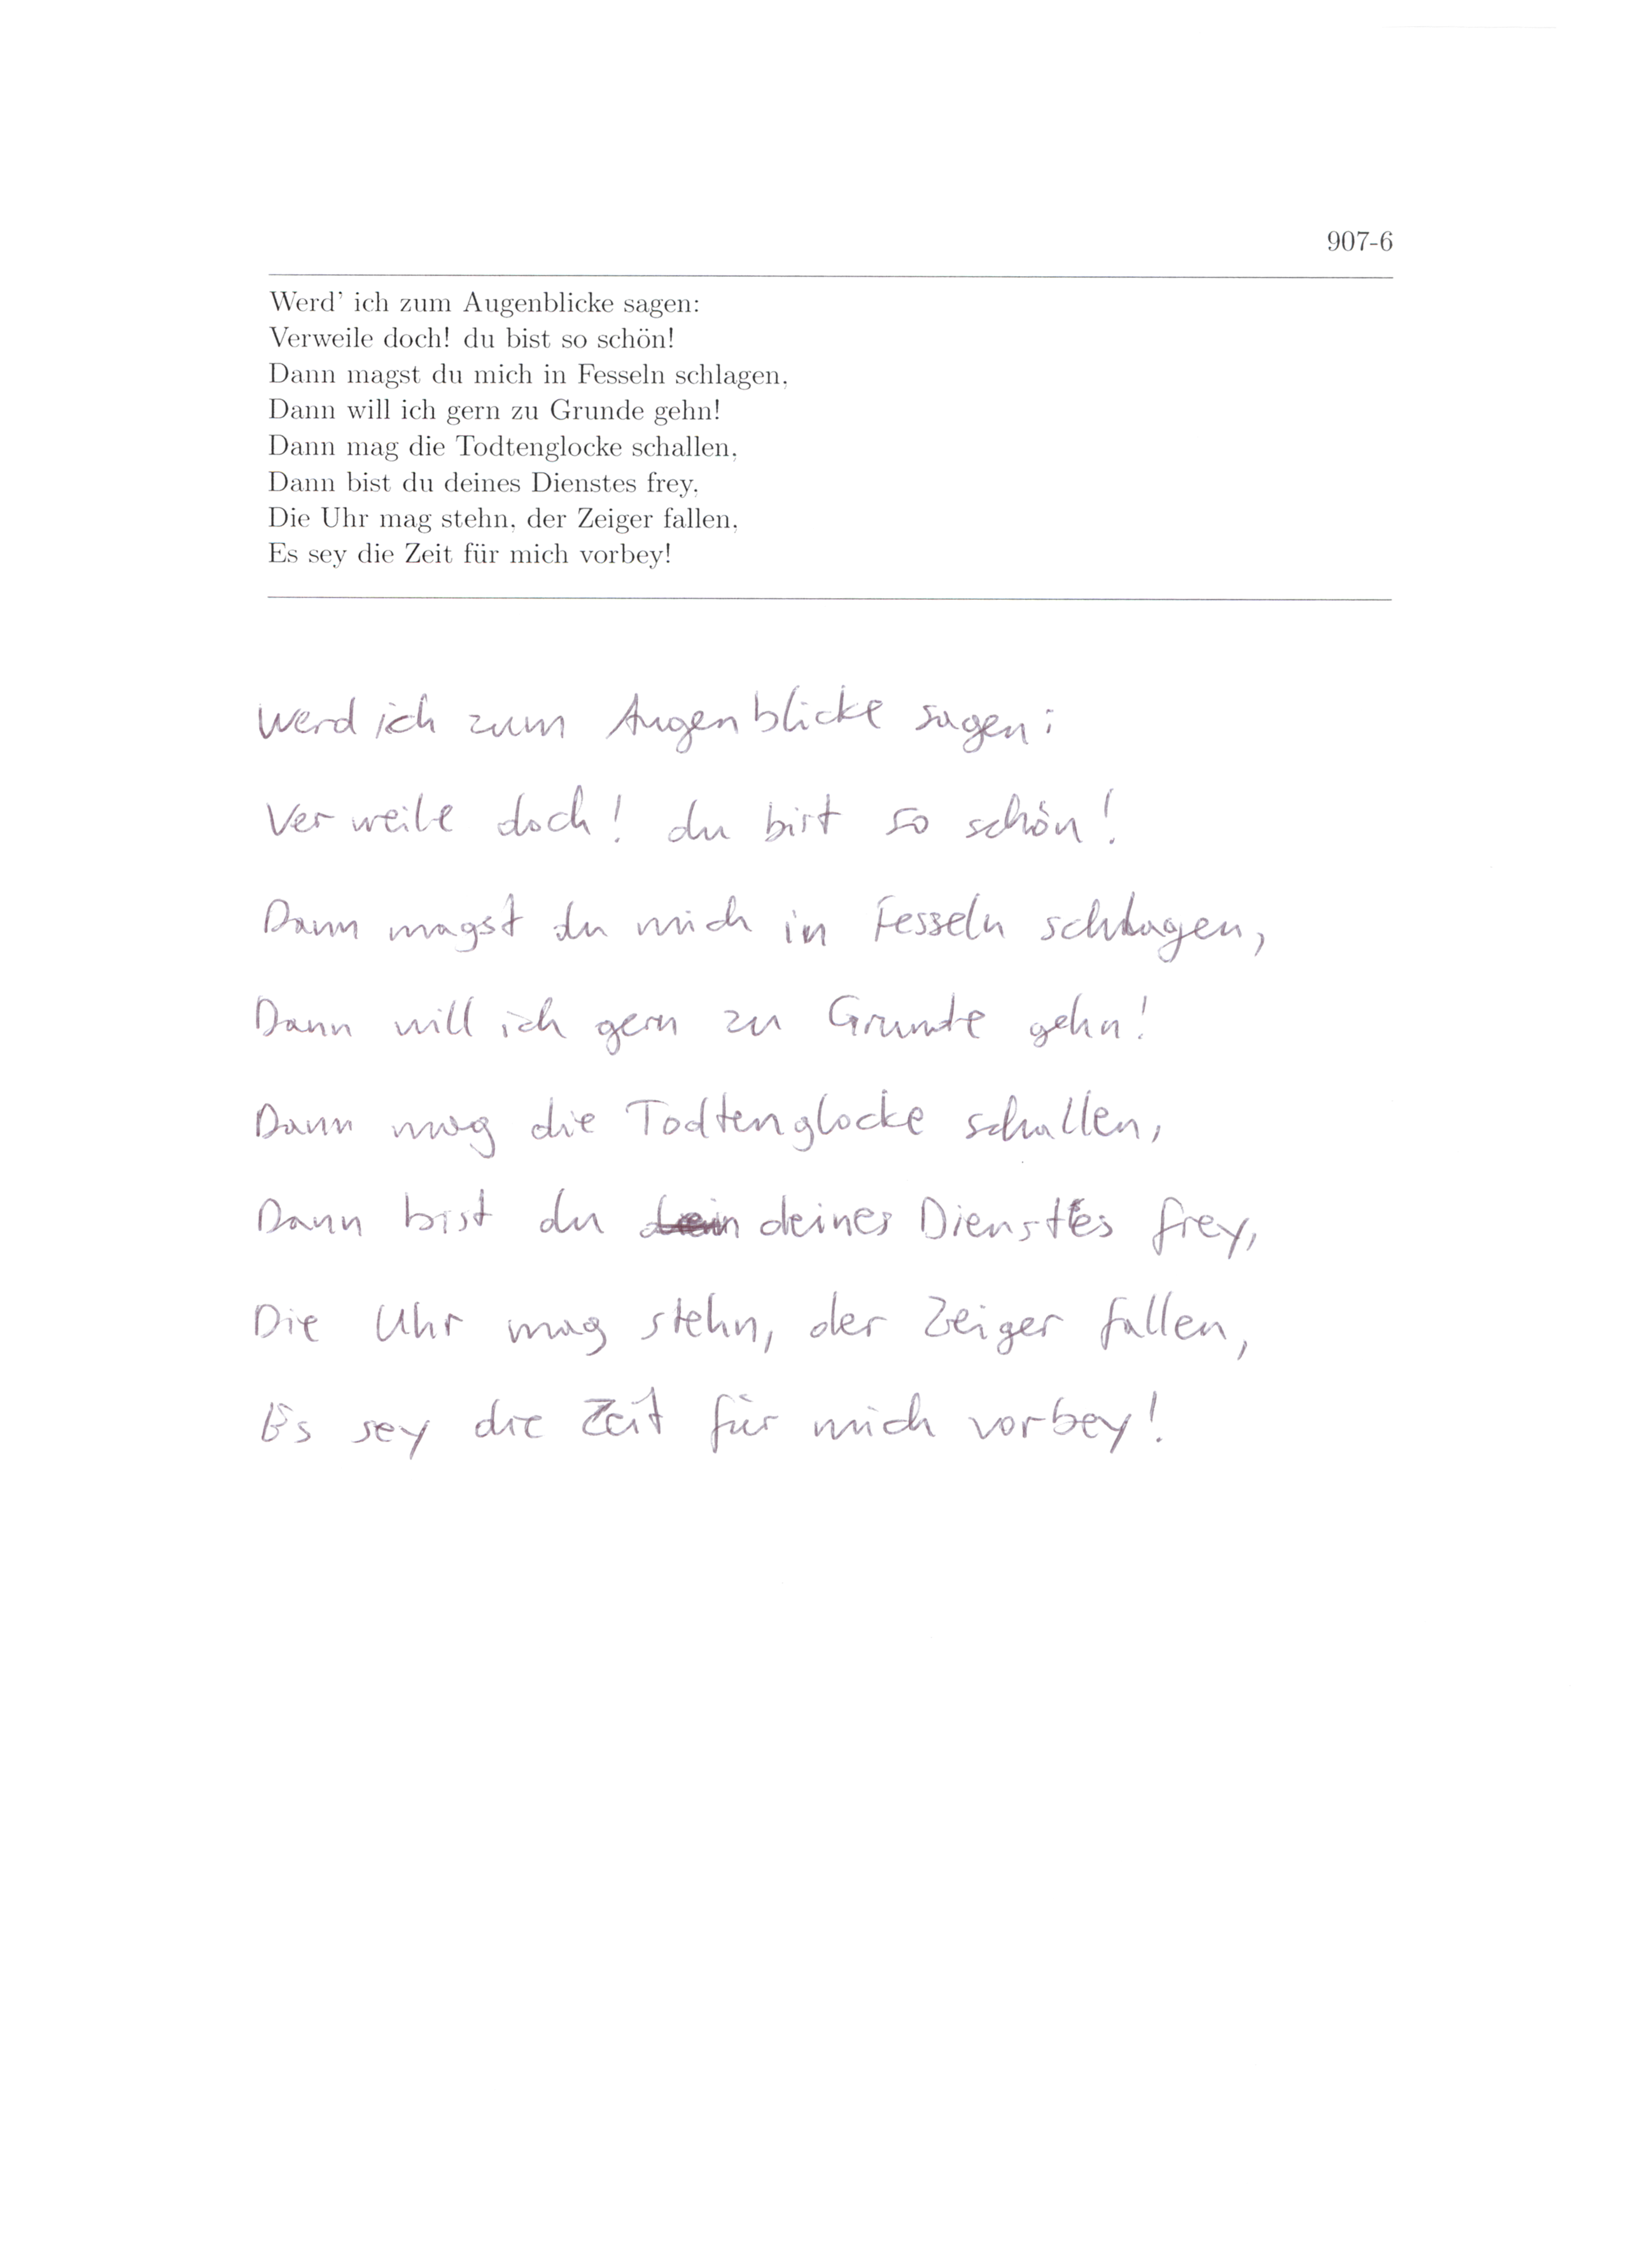 907-6
Werd' ich zum Augenblicke sagen:
Verweile doch! du bist so schön!
Dann magst du mich in Fesseln schlagen,
Dann will ich gern zu Grunde gehn!
Dann mag die Todtenglocke schallen,
Dann bist du deines Dienstes frey,
Die Uhr mag stehn, der Zeiger fallen,
Es sey die Zeit für mich vorbey!
Werd ich zum Augenblicke sagen:
Verweile doch! du bist so schön!
Dann magst du mich in Fesseln schlagen,
Dann will ich gern zu Grunde gehn!
Dann mag die Todtenglocke schallen,
Dann bist du deines Dienstes frey,
Die Uhr mag stehn, der Zeiger fallen,
Es sey die Zeit für mich vorbey!